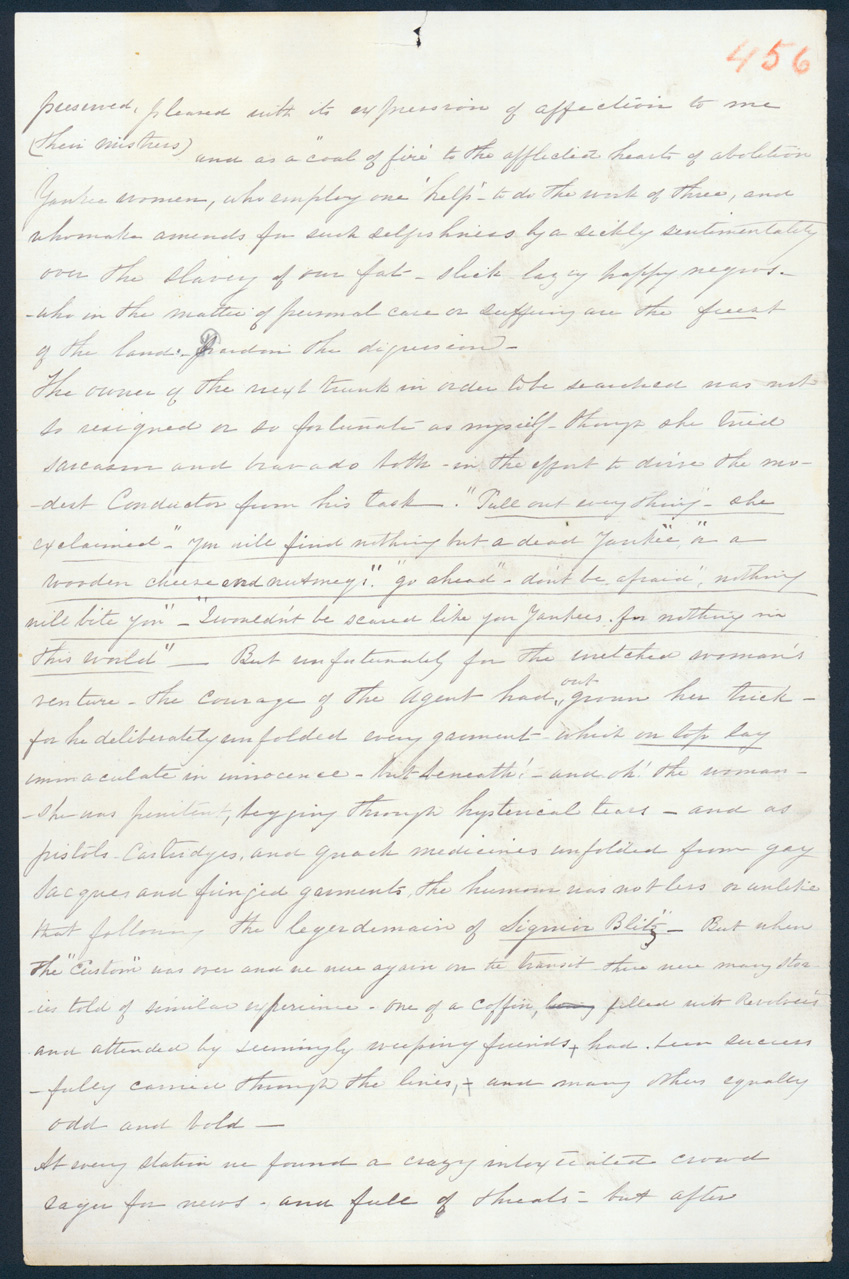 456
preserved, pleased with its expression of affection to me
(their mistress) and as a "coal of fire" to the afflicted hearts of abolition
Yankee women, who employ one 'help' - to do the work of three, and
who make amends for such selfishness by a sickly sentimentality
over the slavery of our fat - slick lazy happy negros -
- who in the matter of personal care or suffering are the freest
of the land. - Pardon the digression -
The owner of the next trunk in order to be searched was not
so resigned or so fortunate as myself - though she tried
sarcasm and bravado both - in the effort to drive the mo-
-dest Conductor from his task - "Pull out every thing" - she
exclaimed - "You will find nothing but a dead Yankee", "or a
wooden cheese and nutmegs". "go ahead" - don't be afraid", nothing
will bite you" - "I wouldn't be scared like you Yankees. for nothing in
this world" — But unfortunately for the wretched woman's
venture - the courage of the Agent had out grown her trick -
for he deliberately unfolded every garment - which on top lay
immaculate in innocence - but beneath! - and oh! the woman -
- she was penitent, begging through hysterical tears - and as
pistols - Cartridges, and quack medicines unfolded from gay
Sacques and fringed garments, the humour was not less or unlike
that following the legerdemain of Signior Blitz - But when
the "Custom" was over and we were again on the transit - there were many stor-
-ies told of similar experience - one of a coffin, filled with Revolvers
and attended by seemingly weeping friends, + had been success
-fully carried through the lines, + and many others equally
odd and bold —
At every station we found a crazy intoxicated crowd
eager for news - and full of threats - but after